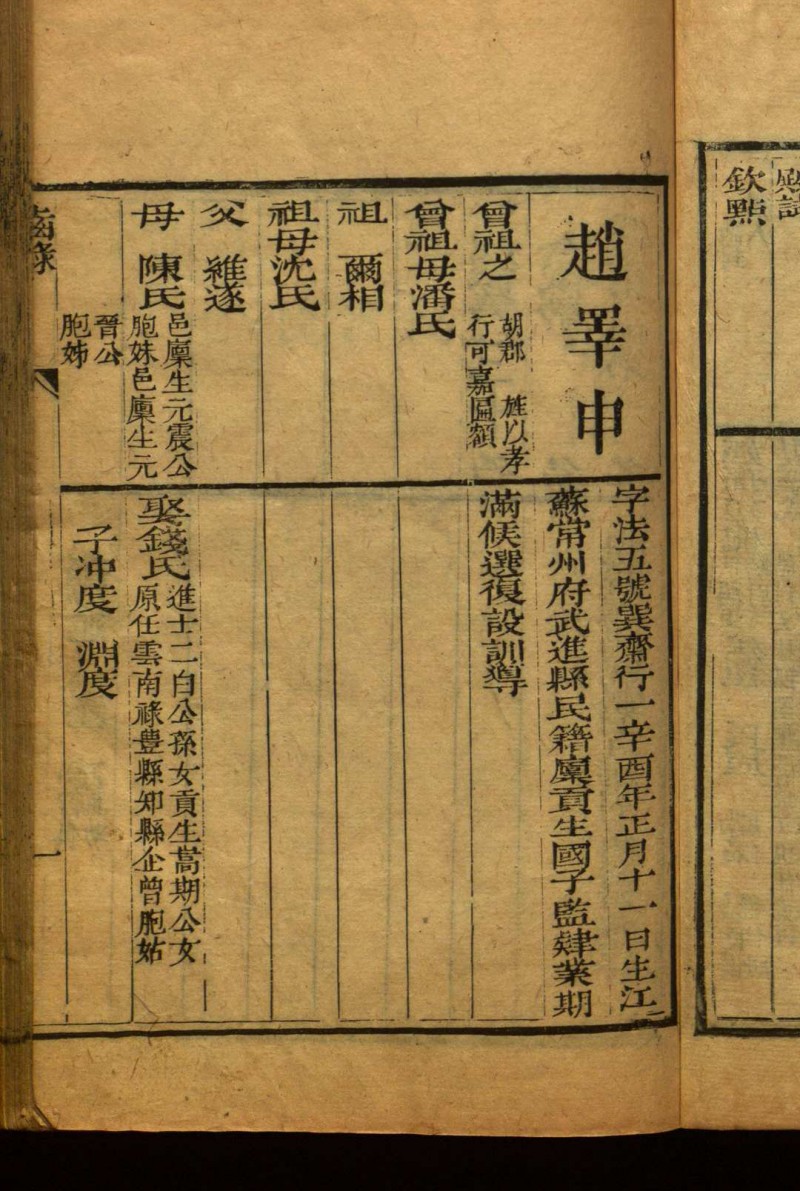 殿試
欽點
趙睪申
曾祖之
胡郡 旌以孝
行可嘉區額
曾祖母潘氏
祖 爾相
祖母沈氏
父 維遂
母 陳氏
邑廩生元震公
胞妹邑廩生元
晉公
胞姊
字法五號巽齋行一辛酉年正月十一日生江
蘇常州府武進縣民籍廩貢生國子監肄業期
滿候選復設訓導
娶錢氏
進士二白公孫女貢生嵩期公女
原任雲南祿豊縣知縣企曾胞姑
子冲度 淵度
齒錄
一